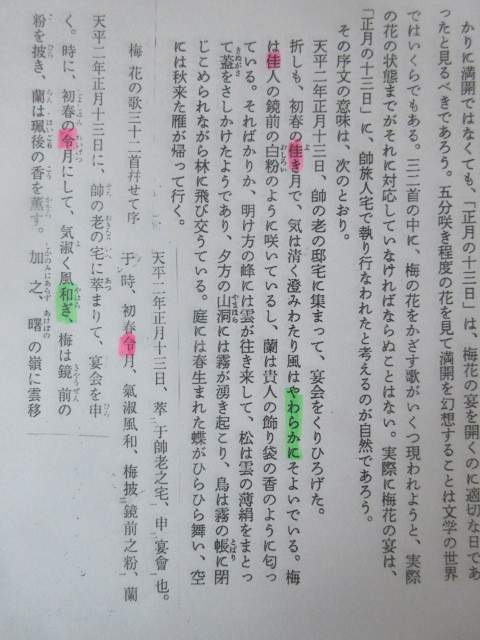 かりに満開ではなくても、「正月の十三日」は、梅花の宴を開くのに適切な日であ
ったと見るべきであろう。五分咲き程度の花を見て満開を幻想することは文学の世界
ではいくらでもある。三二首の中に、梅の花をかざす歌がいくつ現われようと、実際
の花の状態までがそれに対応していなければならぬことはない。実際に梅花の宴は、
「正月の十三日」に、帥旅人宅で執り行なわれたと考えるのが自然であろう。
その序文の意味は、次のとおり。
天平二年正月十三日、帥の老の邸宅に集まって、宴会をくりひろげた。
折しも、初春の佳き月で、気は清く澄みわたり風はやわらかにそよいでいる。梅
は佳人の鏡前の白粉のように咲いているし、蘭は貴人の飾り袋の香のように匂っ
ている。そればかりか、明け方の峰には雲が往き来して、松は雲の薄絹をまとっ
て蓋をさしかけたようであり、夕方の山洞には霧が湧き起こり、鳥は霧の帳に閉
じこめられながら林に飛び交うている。庭には春生まれた蝶がひらひら舞い、空
には秋来た雁が帰って行く。
梅花の歌三十二首幷せて序
天平二年正月十三日、萃于帥老之宅、申宴會也。
于時、初春令月、氣淑風和、梅披鏡前之粉、蘭
天平二年正月十三日に、帥の老の宅に萃まりて、宴会を申
く。時に、初春の令月にして、気淑く風和ぎ、梅は鏡前の
粉を披き、蘭は珮後の香を薫す。加之、曙の嶺に雲移